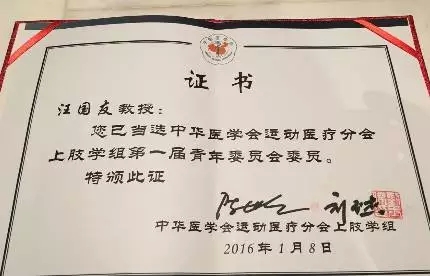 证书
汪国友教授：
您已当选中华医学会运动医疗分会
上肢学组第一届青年委员会委员。
特颁此证
中华医学会运动医疗分会上肢学组
2016年1月8日